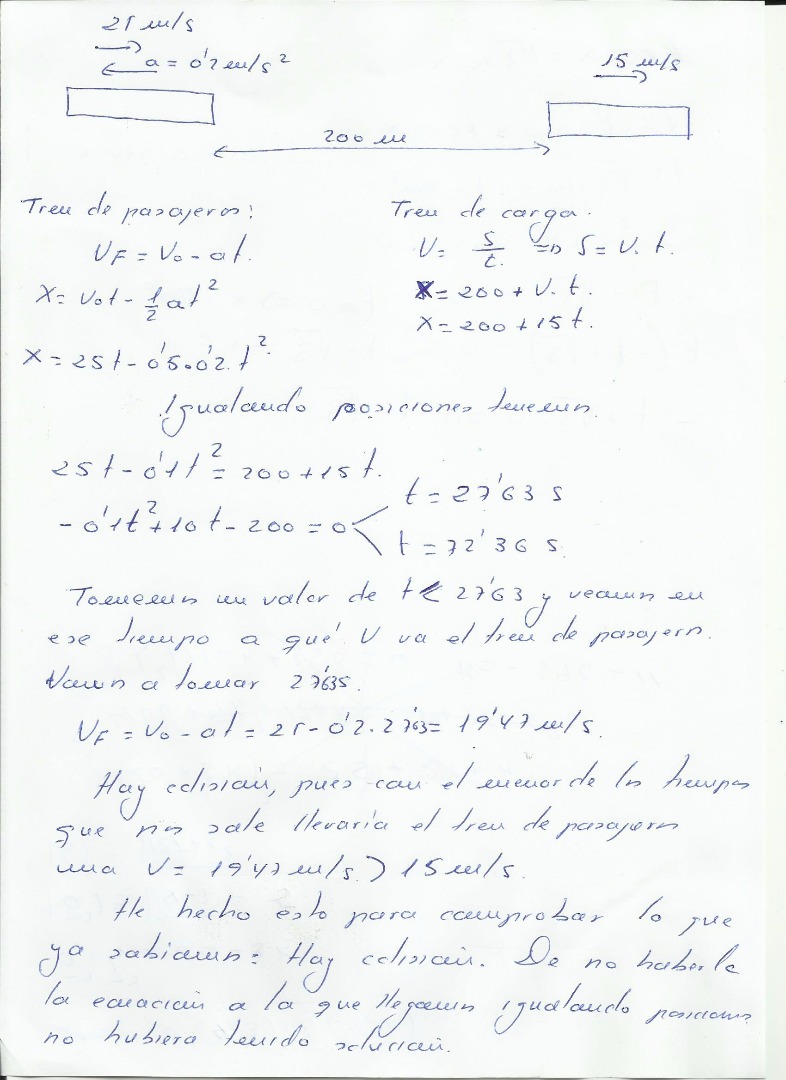 25 m/s
a = 0'2 m/s²
15 m/s
200 m
Tren de pasajeros:
VF = V0 - at.
X = V0t - 1/2 at²
X = 25t - 0'5·0'2·t².
Tren de carga.
V = S/t. => S = V. t.
X = 200 + V. t.
X = 200 + 15 t.
Igualando posiciones tenemos.
25 t - 0'1 t² = 200 + 15 t.
- 0'1t² + 10 t - 200 = 0
t = 27'63 s
t = 72'36 s.
Tomemos un valor de t < 27'63 y veamos en
ese tiempo a qué V va el tren de pasajeros.
Vamos a tomar 27'63s.
VF = V0 - at = 25 - 0'2 · 27'63 = 19'47 m/s.
Hay colisión, pues con el menor de los tiempos
que nos sale llevaría el tren de pasajeros
una V = 19'47 m/s > 15 m/s.
He hecho esto para comprobar lo que
ya sabíamos: Hay colisión. De no haberla
la ecuación a la que llegamos igualando posiciones
no hubiera tenido solución.